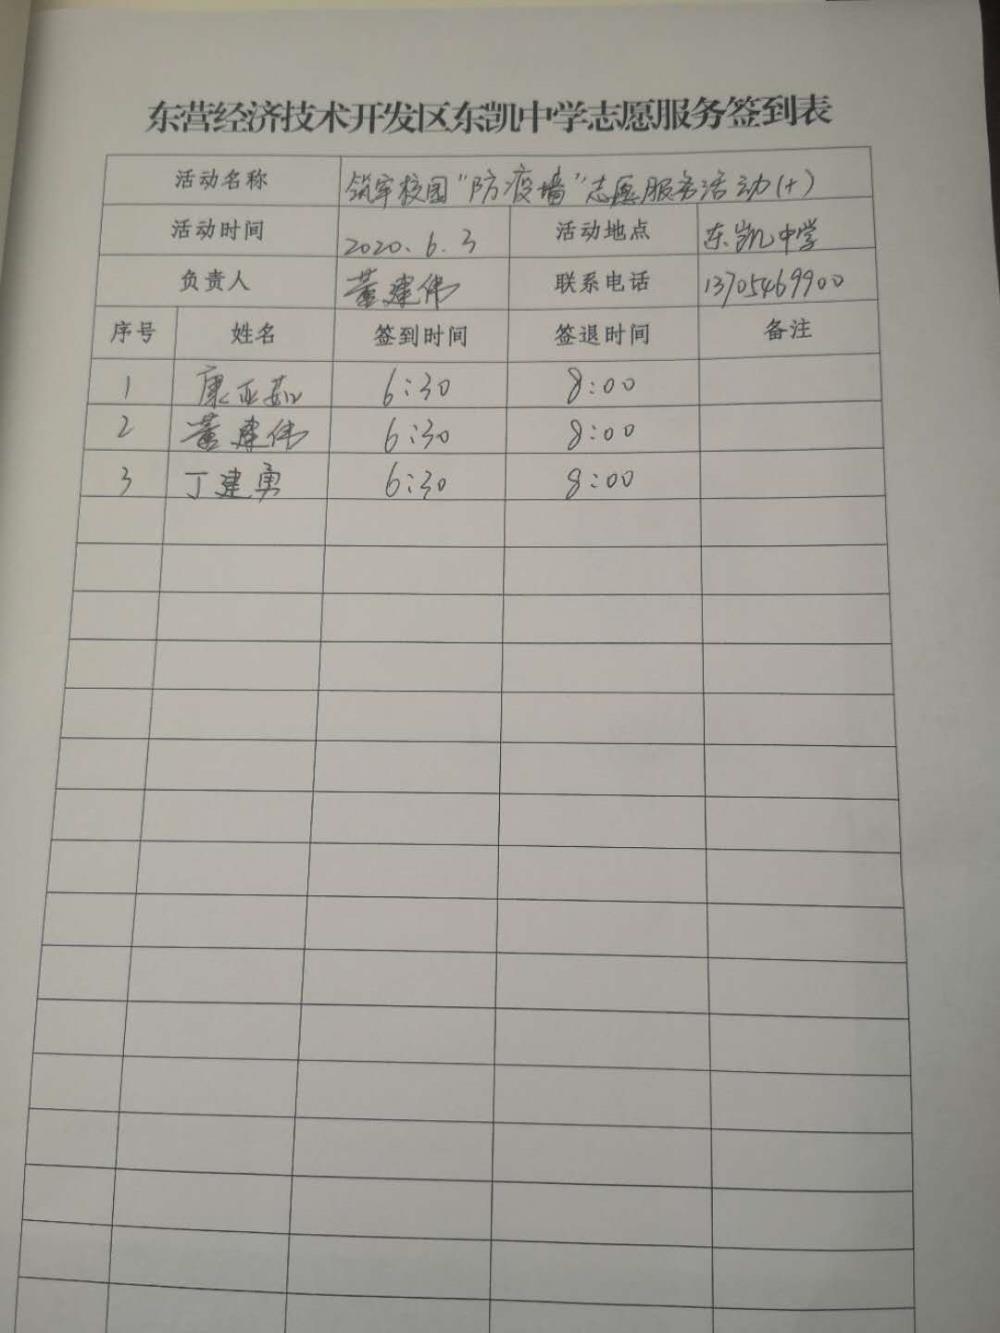 东营经济技术开发区东凯中学志愿服务签到表
活动名称 筑牢校园"防疫墙"志愿服务活动(十)
活动时间 2020.6.3 活动地点 东凯中学
负责人 董建伟 联系电话 13705469900
序号 姓名 签到时间 签退时间 备注
1 康亚茹 6:30 8:00
2 董建伟 6:30 8:00
3 丁建勇 6:30 8:00